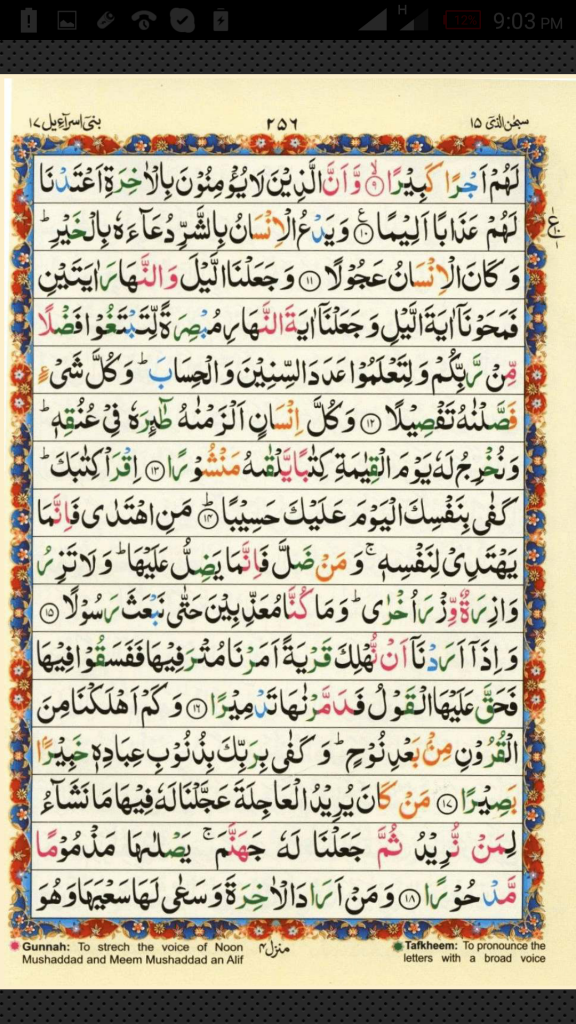 H 12% 9:03 PM
سبحٰن الذی ۱۵ ۲۵۶ بنی اسرآءیل ۱۷
لَهُمْ اَجْرًا كَبِیْرًاۙ۝۹ وَّ اَنَّ الَّذِیْنَ لَا یُؤْمِنُوْنَ بِالْاٰخِرَةِ اَعْتَدْنَا
لَهُمْ عَذَابًا اَلِیْمًا۝۱۰ وَ یَدْعُ الْاِنْسَانُ بِالشَّرِّ دُعَآءَهٗ بِالْخَیْرِؕ
وَ كَانَ الْاِنْسَانُ عَجُوْلًا۝۱۱ وَ جَعَلْنَا الَّیْلَ وَ النَّهَارَ اٰیَتَیْنِ
فَمَحَوْنَاۤ اٰیَةَ الَّیْلِ وَ جَعَلْنَاۤ اٰیَةَ النَّهَارِ مُبْصِرَةً لِّتَبْتَغُوْا فَضْلًا
مِّنْ رَّبِّكُمْ وَ لِتَعْلَمُوْا عَدَدَ السِّنِیْنَ وَ الْحِسَابَؕ وَ كُلَّ شَیْءٍ
فَصَّلْنٰهُ تَفْصِیْلًا۝۱۲ وَ كُلَّ اِنْسَانٍ اَلْزَمْنٰهُ طٰٓىِٕرَهٗ فِیْ عُنُقِهٖؕ
وَ نُخْرِجُ لَهٗ یَوْمَ الْقِیٰمَةِ كِتٰبًا یَّلْقٰىهُ مَنْشُوْرًا۝۱۳ اِقْرَاْ كِتٰبَكَؕ
كَفٰى بِنَفْسِكَ الْیَوْمَ عَلَیْكَ حَسِیْبًاؕ۝۱۴ مَنِ اهْتَدٰى فَاِنَّمَا
یَهْتَدِیْ لِنَفْسِهٖۚ وَ مَنْ ضَلَّ فَاِنَّمَا یَضِلُّ عَلَیْهَاؕ وَ لَا تَزِرُ
وَازِرَةٌ وِّزْرَ اُخْرٰىؕ وَ مَا كُنَّا مُعَذِّبِیْنَ حَتّٰى نَبْعَثَ رَسُوْلًا۝۱۵
وَ اِذَاۤ اَرَدْنَاۤ اَنْ نُّهْلِكَ قَرْیَةً اَمَرْنَا مُتْرَفِیْهَا فَفَسَقُوْا فِیْهَا
فَحَقَّ عَلَیْهَا الْقَوْلُ فَدَمَّرْنٰهَا تَدْمِیْرًا۝۱۶ وَ كَمْ اَهْلَكْنَا مِنَ
الْقُرُوْنِ مِنْۢ بَعْدِ نُوْحٍؕ وَ كَفٰى بِرَبِّكَ بِذُنُوْبِ عِبَادِهٖ خَبِیْرًۢا
بَصِیْرًا۝۱۷ مَنْ كَانَ یُرِیْدُ الْعَاجِلَةَ عَجَّلْنَا لَهٗ فِیْهَا مَا نَشَآءُ
لِمَنْ نُّرِیْدُ ثُمَّ جَعَلْنَا لَهٗ جَهَنَّمَۚ یَصْلٰىهَا مَذْمُوْمًا
مَّدْحُوْرًا۝۱۸ وَ مَنْ اَرَادَ الْاٰخِرَةَ وَ سَعٰى لَهَا سَعْیَهَا وَ هُوَ
Gunnah: To strech the voice of Noon
Mushaddad and Meem Mushaddad an Alif
منزل ۴
Tafkheem: To pronounce the
letters with a broad voice